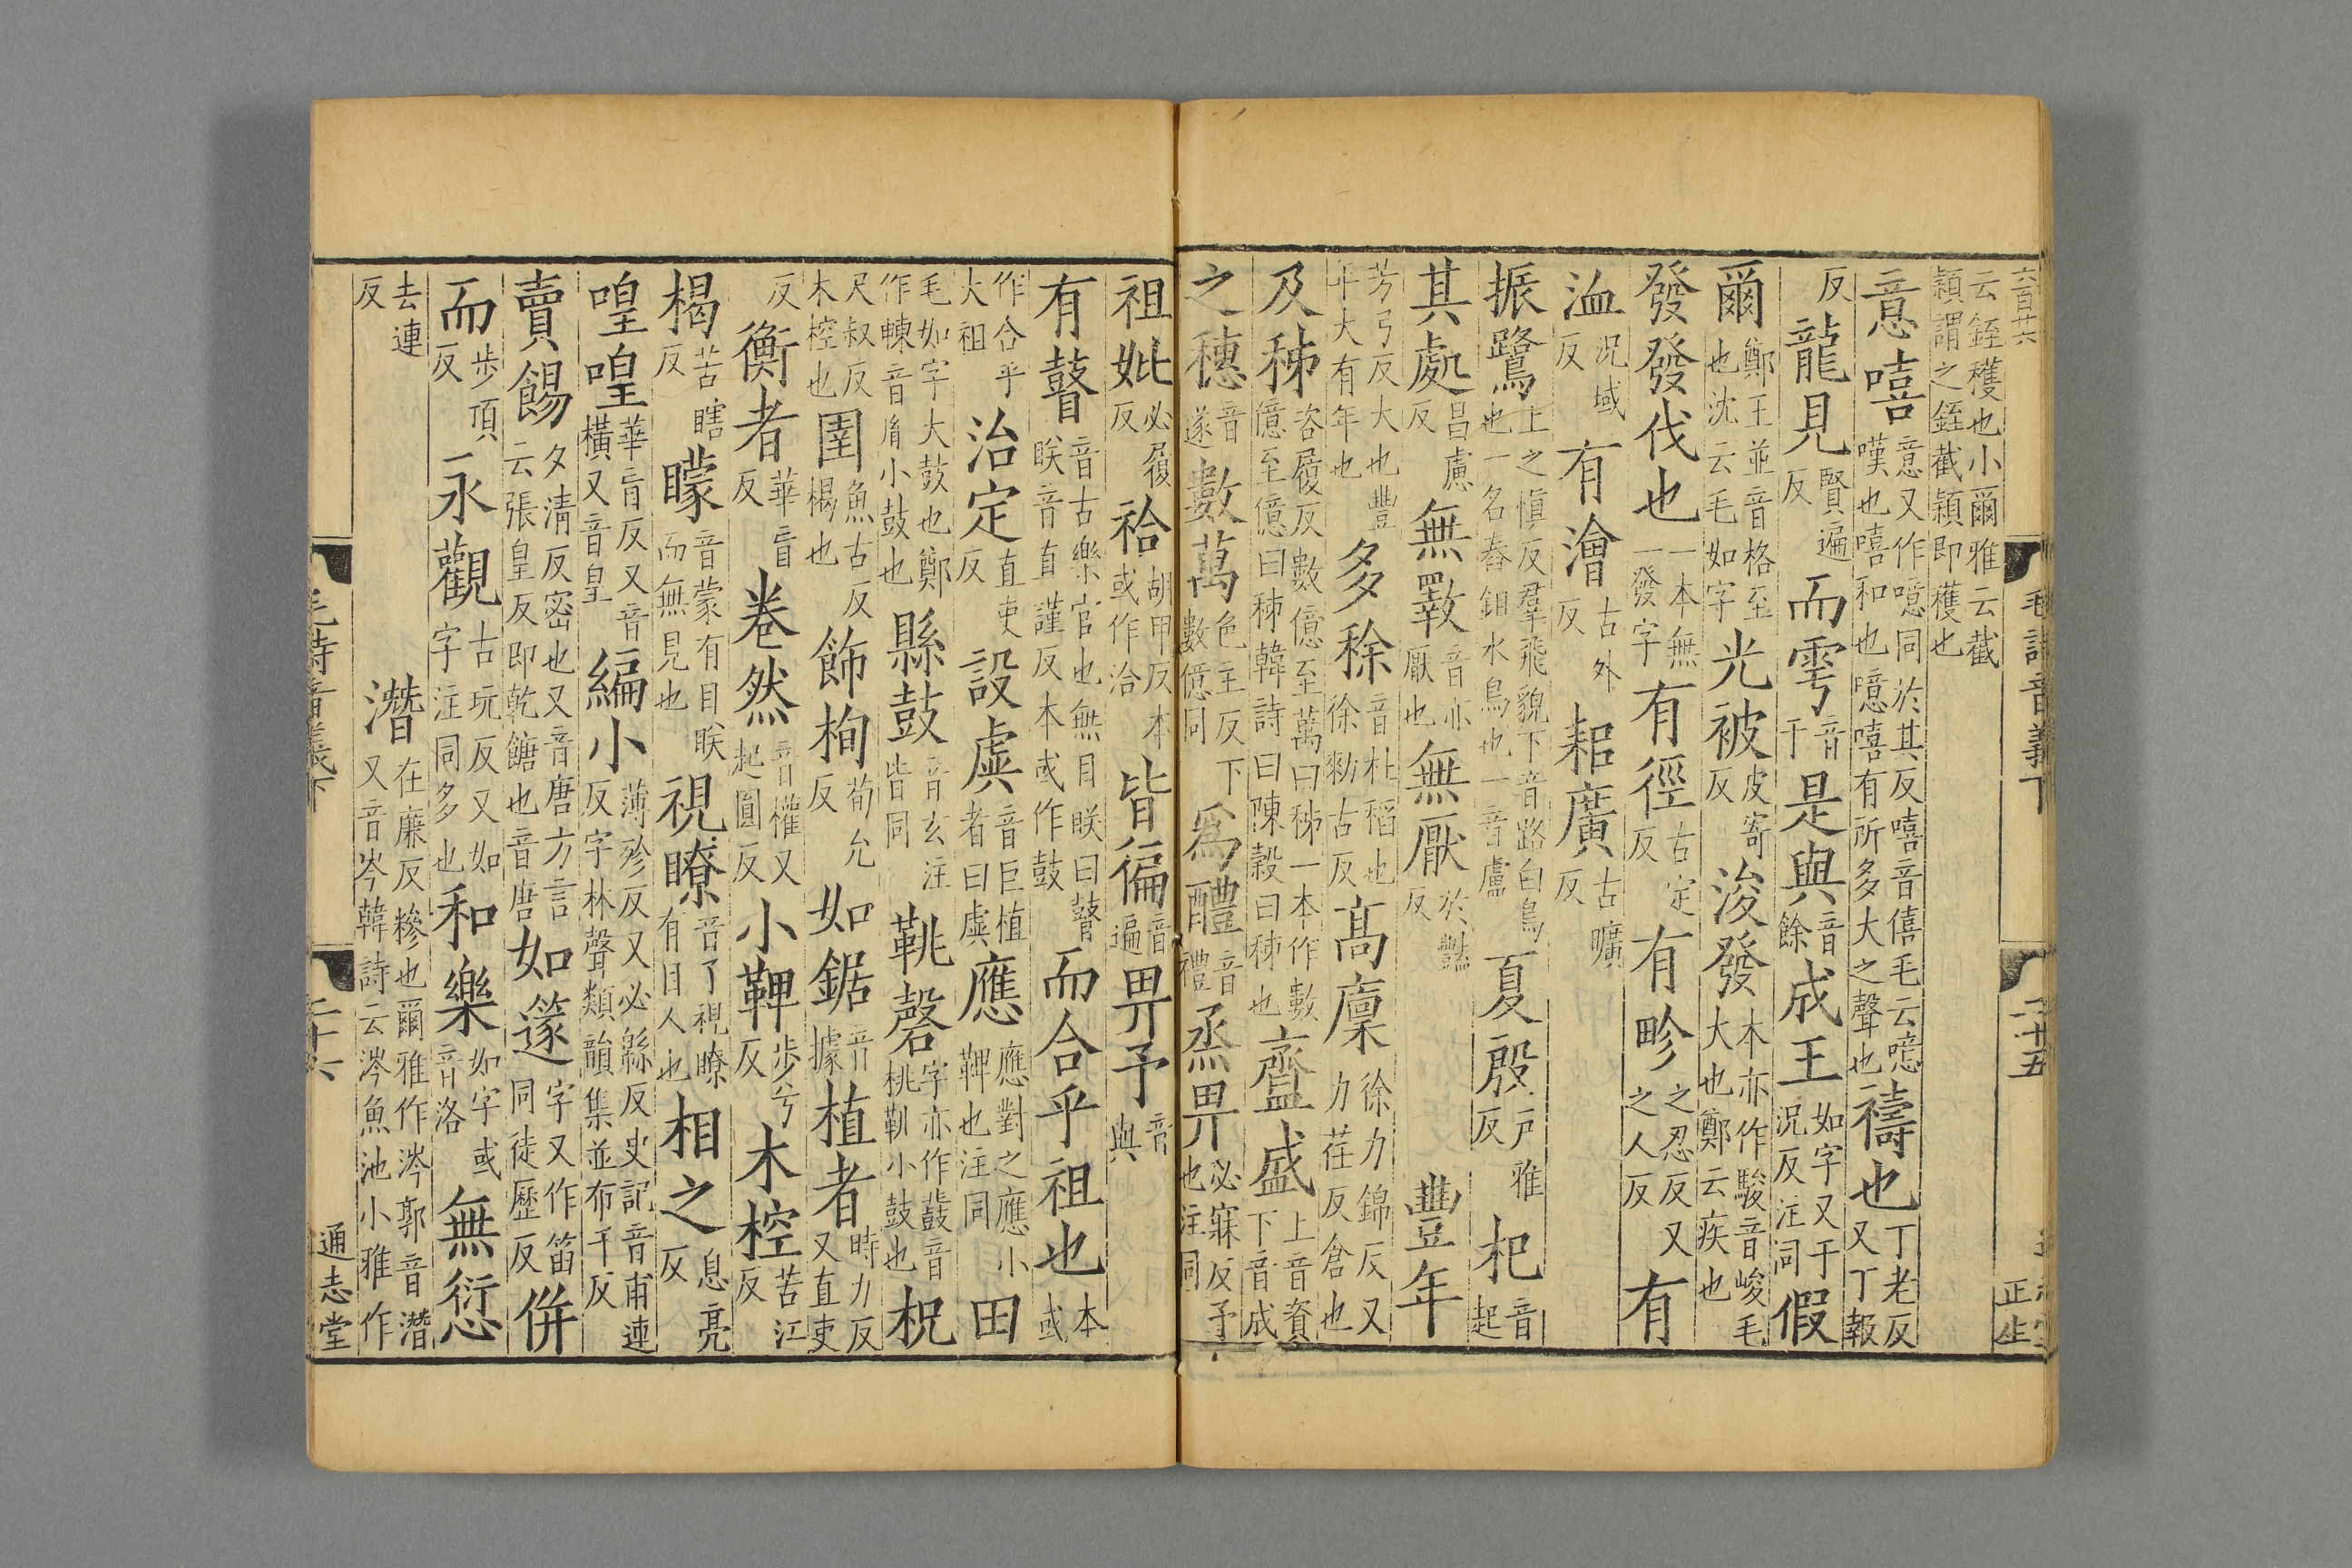 六百廿六
云銍穫也小爾雅云截穎謂之銍截穎即穫也
意嘻意又作噫同於其反嘻音僖毛云噫嘆也嘻和也噫嘻有所多大之聲也禱也丁老反又丁報
反龍見賢遍反而雩音于是與音餘成王如字又于況反注同假
爾鄭王並音格至也沈云毛如字光被皮寄反浚發本亦作駿音峻毛大也鄭云疾也
發發伐也一本無一發字有徑古定反有畛之忍反又之人反有
洫況域反有澮古外反耜廣古曠反
振鷺上之慎反羣飛貌下音路白鳥也一名舂鉏水鳥也一音盧夏殷戶雅反杞音起
其處昌慮反無斁音亦厭也無厭於豔反豐年
芳弓反大也豐年大有年也多稌音杜稻也徐勑古反高廩徐力錦反又力荏反倉也
及秭咨履反數億至萬曰秭一本作數億至億曰秭韓詩曰陳穀曰秭也齍盛上音資下音成
之穗音遂數萬色主反下數億同為醴音禮烝畀必寐反予也注同
毛詩音義下
二十五
正生
祖妣必履反祫胡甲反本或作洽皆徧音遍畀予音與
有瞽音古樂官也無目眹曰瞽眹音直謹反本或作鼓而合乎祖也本或
作合乎大祖治定直吏反設虡音巨植者曰虡應應對之應小鞞也注同田
毛如字大鼓也鄭作朄音胤小鼓也縣鼓音玄注皆同鞉磬字亦作鼗音桃鞉小鼓也柷
尺叔反木椌也圉魚古反楬也飾栒荀允反如鋸音據植者時力反又直吏
反衡者華盲反卷然音權又起圓反小鞞步兮反木椌苦江反
楬苦瞎反矇音蒙有目眹而無見也視瞭音了視瞭有目人也相之息亮反
喤喤華盲反又音橫又音皇編小薄殄反又必緜反史記音甫連反字林聲類韻集並布千反
賣餳夕清反密也又音唐方言云張皇反即乾餹也音唐如篴字又作笛同徒歷反併
而步頂反永觀古玩反又如字注同多也和樂如字或音洛無愆
去連反
潛在廉反糝也爾雅作涔郭音潛又音岑韓詩云涔魚池小雅作
毛詩音義下
二十六
通志堂